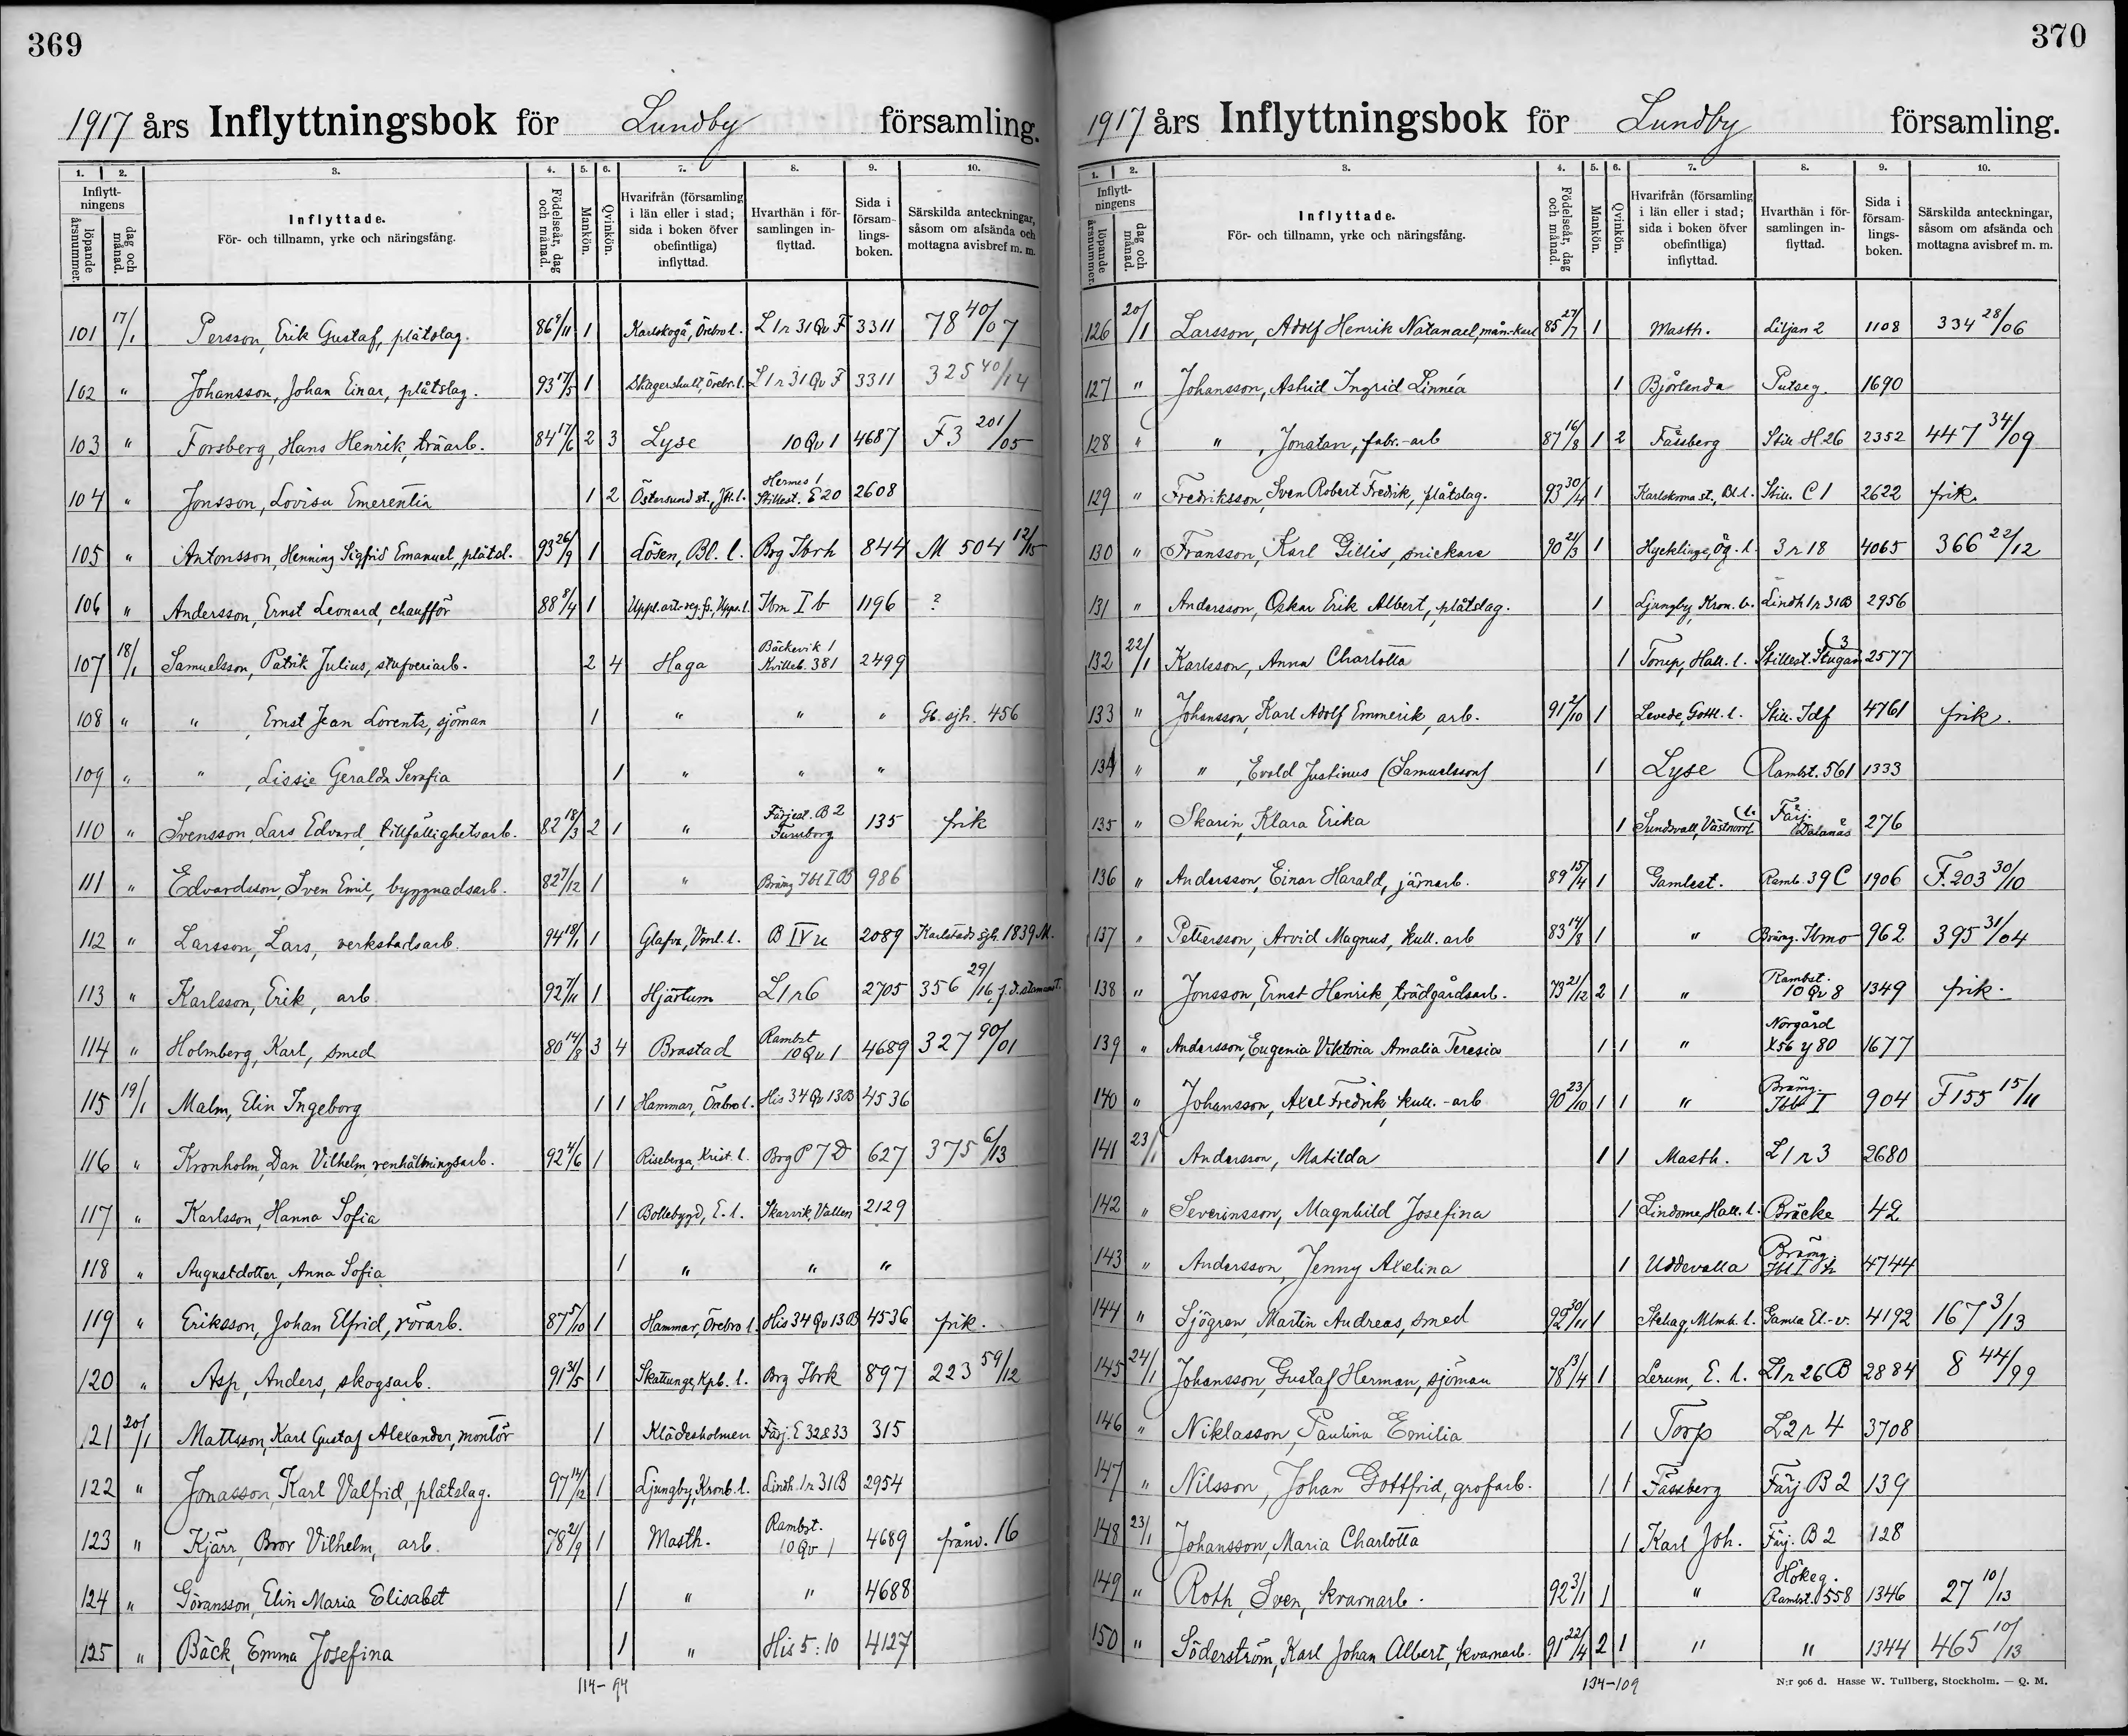 369
1917 års Inflyttningsbok för Lundby församling.
1. 2. 3. 4. 5. 6. 7. 8. 9. 10.
Inflyttningens
löpande årsnummer.
dag och månad.
Inflyttade.
För- och tillnamn, yrke och näringsfång.
Födelseår, dag och månad.
Mankön.
Qvinkön.
Hvarifrån (församling i län eller i stad; sida i boken öfver obefintliga) inflyttad.
Hvarthän i församlingen inflyttad.
Sida i församlingsboken.
Särskilda anteckningar, såsom om afsända och mottagna avisbref m. m.
101 17/1 Persson, Erik Gustaf, plåtslag. 86 9/11 1 Karlskoga, Örebro l. L 1 r 31 Qv F 3311 78 40/07
102 " Johansson, Johan Einar, plåtslag. 93 17/5 1 Skagershult, Örebr. l. L 1 r 31 Qv F 3311 325 40/14
103 " Forsberg, Hans Henrik, träarb. 84 17/6 2 3 Lyse 10 Qv 1 4687 F 3 201/05
104 " Jonsson, Lovisa Emerentia 1 2 Östersund st., Jtl. l. Hermes 1 Stillest. E 20 2608
105 " Antonsson, Henning Sigfrid Emanuel, plåtsl. 93 26/9 1 Lösen, Bl. l. Brg Ibrh 844 M 504 12/15
106 " Andersson, Ernst Leonard, chaufför 88 8/4 1 Uppl. art.-reg. fs., Upps. l. Ibm I b 1196 ?
107 18/1 Samuelsson, Patrik Julius, stufveriarb. 2 4 Haga Bäckevik 1 Kvilleb. 381 2499
108 " " , Ernst Jean Lorentz, sjöman 1 " " " Gb. sjh. 456
109 " " , Lissie Geralda Serafia 1 " " "
110 " Svensson, Lars Edvard, tillfällighetsarb. 82 18/3 2 1 " Färjest. B 2 Furuborg 135 frik
111 " Edvardsson, Sven Emil, byggnadsarb. 82 7/12 1 " Bräng Ibl I B 986
112 " Larsson, Lars, verkstadsarb. 94 18/1 1 Glafva, Vrml. l. B IV u 2089 Karlstads sjh. 1839 M.
113 " Karlsson, Erik, arb. 92 7/11 1 Hjärtum L 1 r 6 2705 356 29/16, f. d. stamanst.
114 " Holmberg, Karl, smed 80 14/8 3 4 Brastad Rambst 10 Qv 1 4689 327 90/01
115 19/1 Malm, Elin Ingeborg 1 1 Hammar, Örebro l. His 34 Qv 13 B 4536
116 " Kronholm, Dan Vilhelm, renhållningsarb. 92 4/6 1 Riseberga, Krist. l. Brg P 7 D 627 375 6/13
117 " Karlsson, Hanna Sofia 1 Bollebygd, E. l. Skarvik, Vallen 2129
118 " Augustdotter, Anna Sofia 1 " " "
119 " Eriksson, Johan Elfrid, rörarb. 87 5/10 1 Hammar, Örebro l. His 34 Qv 13 B 4536 frik.
120 " Asp, Anders, skogsarb. 91 31/5 1 Skattunge, Kpb. l. Brg Ibrk 897 223 59/12
121 20/1 Mattsson, Karl Gustaf Alexander, montör 1 Klädesholmen Färj. E 32 & 33 315
122 " Jonasson, Karl Valfrid, plåtslag. 97 14/12 1 Ljungby, Kronb. l. Lindh. 1 r 31 B 2954
123 " Kjärr, Bror Vilhelm, arb. 78 21/9 1 Masth. Rambst. 10 Qv 1 4689 frånv. 16
124 " Göransson, Elin Maria Elisabet 1 " " 4688
125 " Bäck, Emma Josefina 1 " His 5:10 4127
114 - 94
370
1917 års Inflyttningsbok för Lundby församling.
1. 2. 3. 4. 5. 6. 7. 8. 9. 10.
Inflyttningens
löpande årsnummer.
dag och månad.
Inflyttade.
För- och tillnamn, yrke och näringsfång.
Födelseår, dag och månad.
Mankön.
Qvinkön.
Hvarifrån (församling i län eller i stad; sida i boken öfver obefintliga) inflyttad.
Hvarthän i församlingen inflyttad.
Sida i församlingsboken.
Särskilda anteckningar, såsom om afsända och mottagna avisbref m. m.
126 20/1 Larsson, Adolf Henrik Natanael, mån.-karl 85 27/7 1 Masth. Liljan 2 1108 334 28/06
127 " Johansson, Astrid Ingrid Linnéa 1 Björlanda Putseg. 1690
128 " " , Jonatan, fabr.-arb 87 16/8 1 2 Fässberg Still. H 26 2352 447 34/09
129 " Fredriksson, Sven Robert Fredrik, plåtslag. 93 30/4 1 Karlskrona st., Bl. l. Still. C 1 2622 frik.
130 " Fransson, Karl Gillis, snickare 90 21/3 1 Hycklinge, Ög. l. 3 r 18 4065 366 22/12
131 " Andersson, Oskar Erik Albert, plåtslag. 1 Ljungby, Kron. l. Lindh 1 r 31 B 2956
132 22/1 Karlsson, Anna Charlotta 1 Torup, Hall. l. Stillest. Stugan 3 2577
133 " Johansson, Karl Adolf Emmerik, arb. 91 2/10 1 Levede, Gottl. l. Still. Idf 4761 frik.
134 " " , Evald Justinus (Samuelsson) 1 Lyse Rambst. 561 1333
135 " Skarin, Klara Erika 1 Sundsvall, Västnorrl. l. Färj. Dalanäs 276
136 " Andersson, Einar Harald, järnarb. 89 15/4 1 Gamlest. Ramb. 39 C 1906 F. 203 30/10
137 " Pettersson, Arvid Magnus, kull. arb 83 14/8 1 " Bräng. Ibmo 962 395 31/04
138 " Jonsson, Ernst Henrik, trädgårdsarb. 73 21/12 2 1 " Rambst. 10 Qv 8 1349 frik.
139 " Andersson, Eugenia Viktoria Amalia Teresia 1 1 " Norgård X 56 y 80 1677
140 " Johansson, Axel Fredrik, kull.-arb 90 23/10 1 1 " Bräng. Ibl I 904 F 155 15/11
141 23/1 Andersson, Matilda 1 1 Masth. L 1 r 3 2680
142 " Severinsson, Magnhild Josefina 1 Lindome, Hall. l. Bräcke 42
143 " Andersson, Jenny Axelina 1 Uddevalla Bräng. 4744
144 " Sjögren, Martin Andreas, smed 92 30/11 1 Stehag, Mlmh. l. Gamla El.-v. 4192 167 3/13
145 24/1 Johansson, Gustaf Herman, sjöman 78 13/4 1 Lerum, E. l. L 1 r 26 B 2884 8 44/99
146 " Niklasson, Paulina Emilia 1 Torp L 2 r 4 3708
147 " Nilsson, Johan Gottfrid, grofarb. 1 1 Fässberg Färj B 2 139
148 23/1 Johansson, Maria Charlotta 1 Karl Joh. Färj. B 2 128
149 " Roth, Sven, kvarnarb. 92 3/1 1 " Hökeg. Rambst. 558 1346 27 10/13
150 " Söderström, Karl Johan Albert, kvarnarb. 91 22/4 2 1 " " 1344 465 10/13
134 - 109
N:r 906 d. Hasse W. Tullberg, Stockholm. — Q. M.